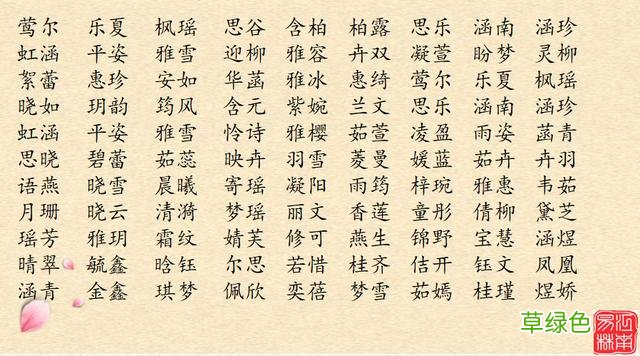 莺尔 乐夏 枫瑶 思谷 含柏 柏露 思乐 涵南 涵珍
虹涵 平姿 雅雪 迎柳 雅容 卉双 凝萱 盼梦 灵柳
絮蕾 惠珍 安如 华菡 雅冰 惠绮 莺尔 乐夏 枫瑶
晓如 玥韵 筠风 含元 紫婉 兰文 思乐 涵南 涵珍
虹涵 平姿 雅雪 怜诗 雅樱 茹萱 凌盈 雨姿 菡青
思晓 碧蕾 茹蕊 映卉 羽雪 菱曼 媛蓝 茹卉 卉羽
语燕 晓雪 晨曦 寄瑶 凝阳 雨筠 梓琬 雅惠 韦茹
月珊 晓云 清漪 梦瑶 丽文 香莲 童彤 倩柳 黛芝
瑶芳 雅玥 霜纹 婧芙 修可 燕生 锦野 宝慧 涵煜
晴翠 毓鑫 晗钰 尔思 若惜 桂齐 佶开 钰文 凤凰
涵青 金鑫 琪梦 佩欣 奕蓓 梦雪 茹嫣 桂瑾 煜娇
草绿色
江南易林